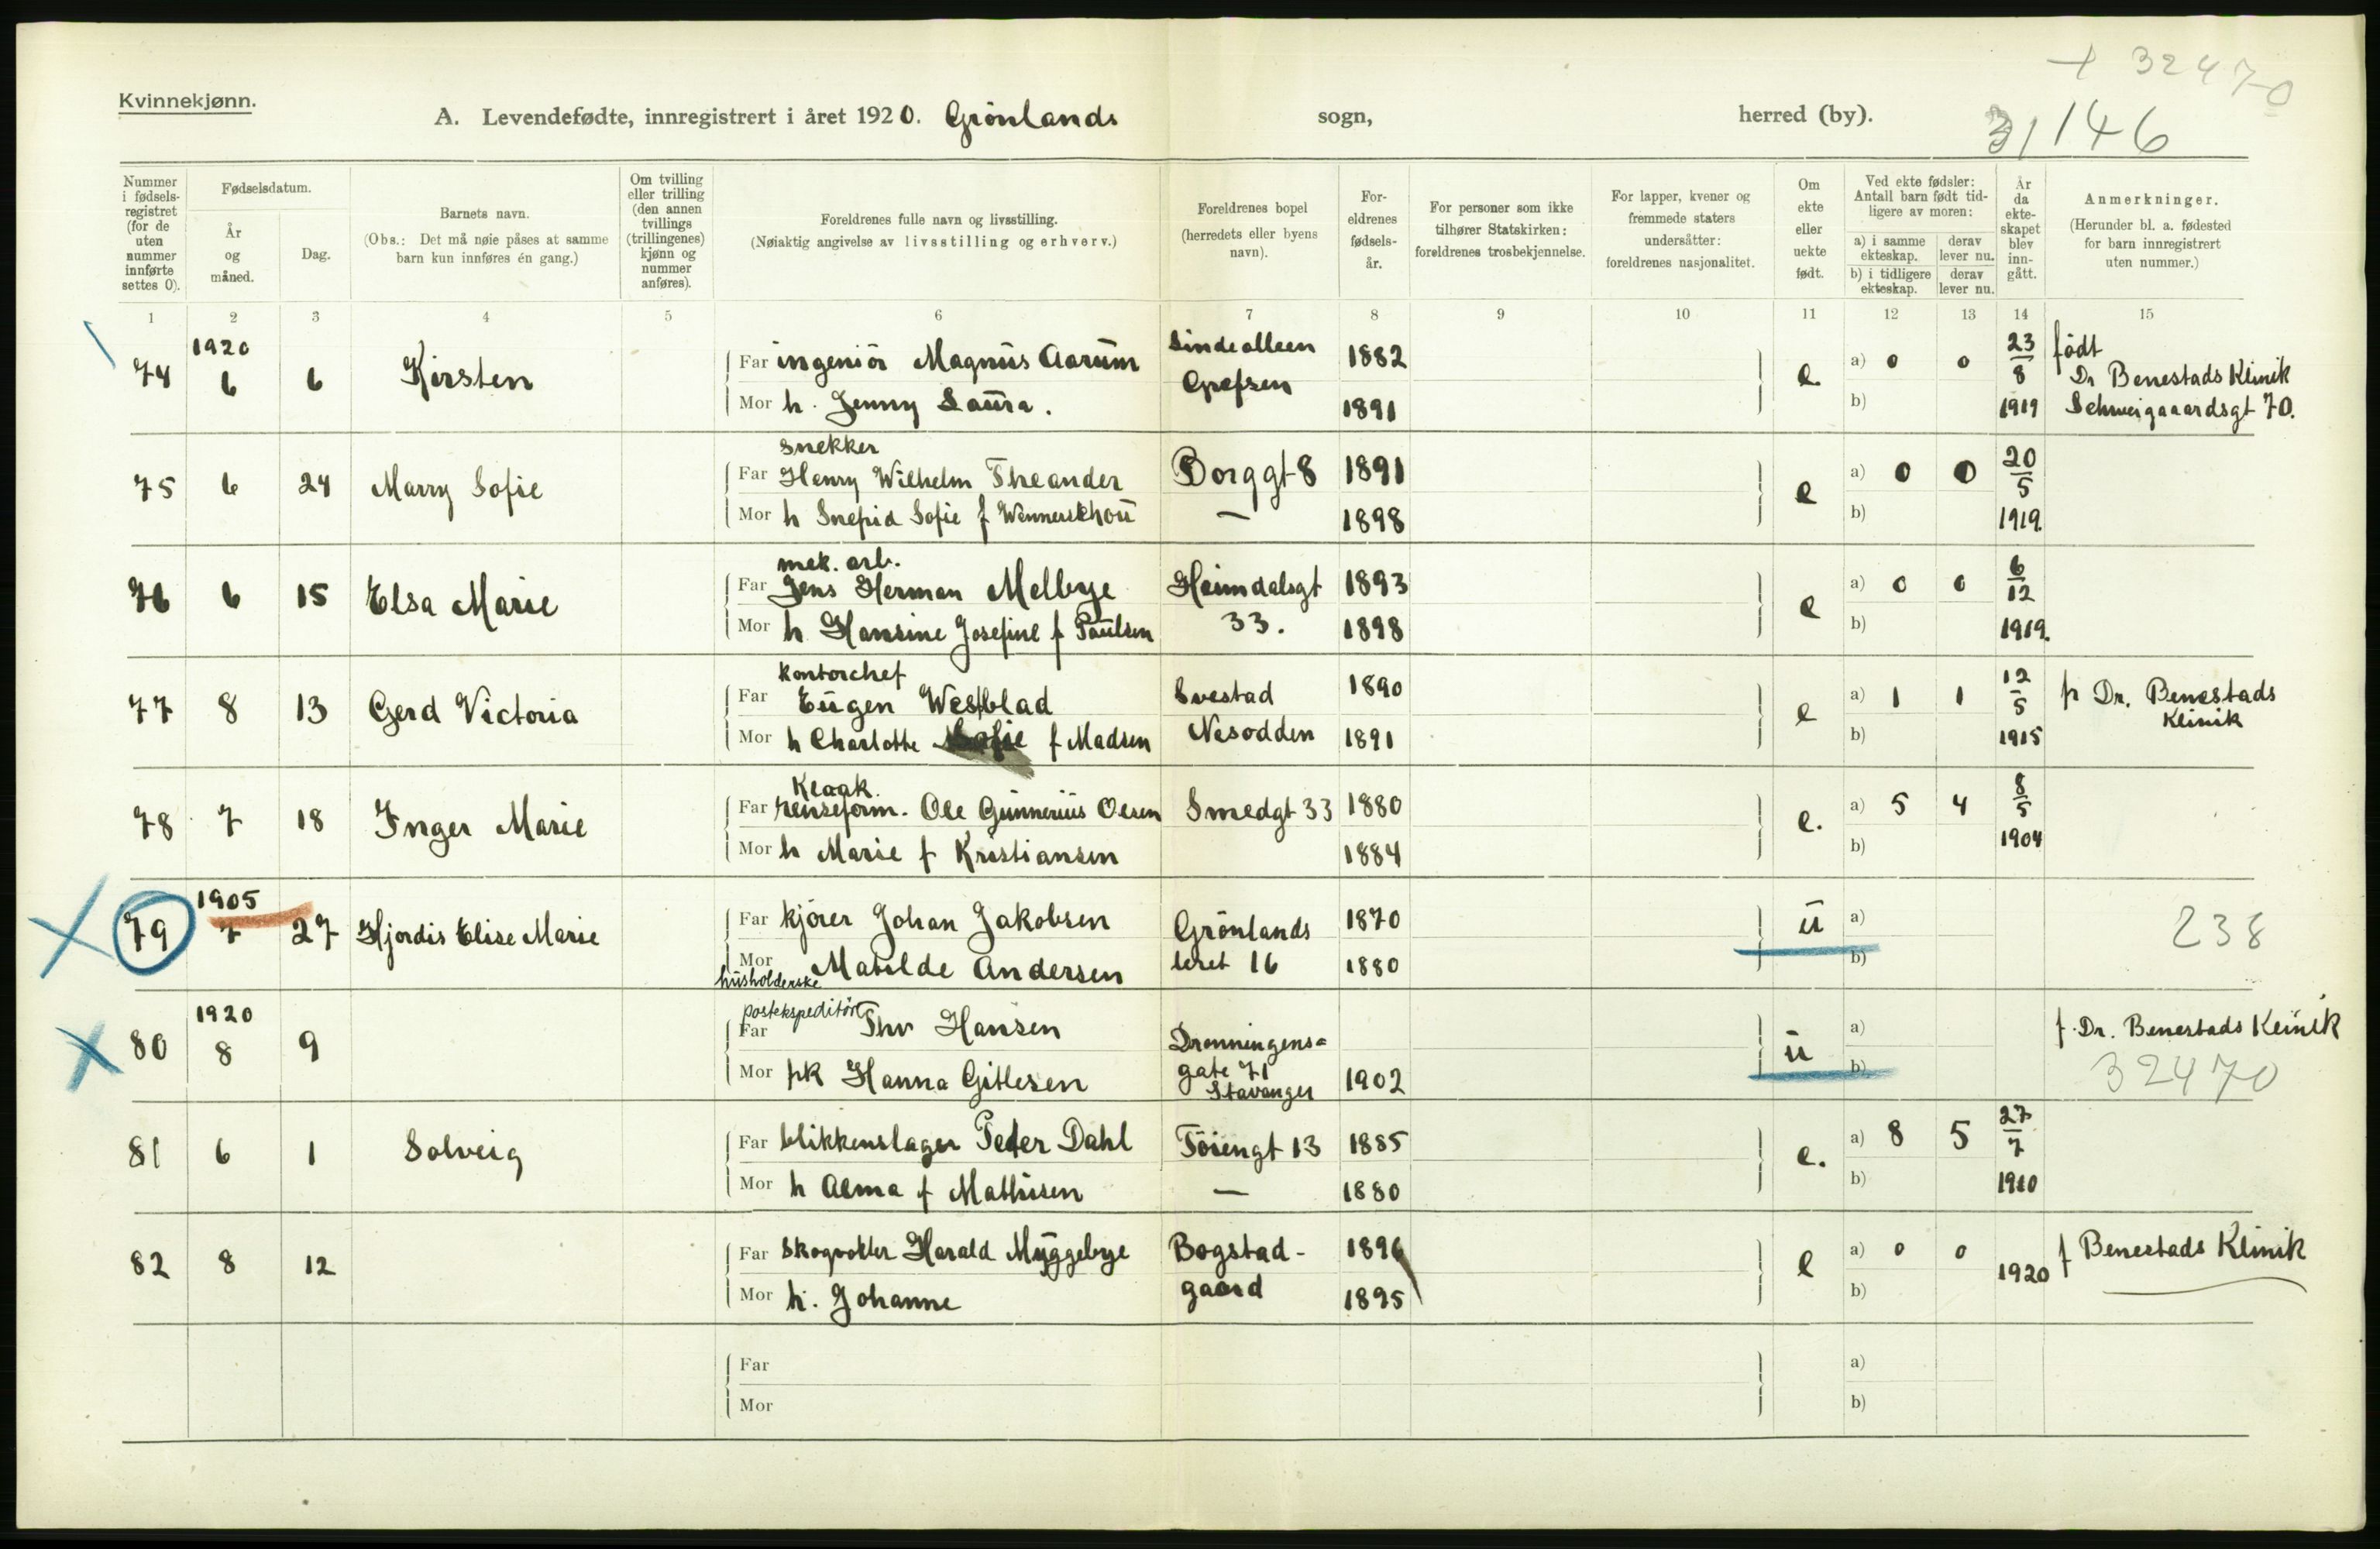 + 32470
Kvinnekjønn.
A. Levendefødte, innregistrert i året 1920. Grönlands sogn, herred (by). 31 146
Nummer i fødselsregistret (for de uten nummer innførte settes 0).
Fødselsdatum.
År og måned.
Dag.
Barnets navn.
(Obs.: Det må nøie påses at samme barn kun innføres én gang.)
Om tvilling eller trilling (den annen tvillings (trillingenes) kjønn og nummer anføres).
Foreldrenes fulle navn og livsstilling.
(Nøiaktig angivelse av livsstilling og erhverv.)
Foreldrenes bopel (herredets eller byens navn).
For-eldrenes fødsels-år.
For personer som ikke tilhører Statskirken: foreldrenes trosbekjennelse.
For lapper, kvener og fremmede staters undersåtter: foreldrenes nasjonalitet.
Om ekte eller uekte født.
Ved ekte fødsler: Antall barn født tidligere av moren:
a) i samme ekteskap. derav lever nu.
b) i tidligere ekteskap. derav lever nu.
År da ekte-skapet blev inn-gått.
Anmerkninger.
(Herunder bl. a. fødested for barn innregistrert uten nummer.)
1 2 3 4 5 6 7 8 9 10 11 12 13 14 15
74 1920 6 6 Kirsten Far ingeniör Magnus Aarum Lindealleen 1882 e. a) 0 0 23/8 født
Mor h. Jenny Laura. Grefsen 1891 b) 1919 Dr Benestads Klinik
Schweigaaardsgt 70.
snekker
75 6 24 Marry Sofie Far Henry Wilhelm Theander Borggt 8 1891 e a) 0 0 20/5
Mor h Snefrid Sofie f Wennerskhou — 1898 b) 1919.
mek. arb.
76 6 15 Elsa Marie Far Jens Herman Melbye Heimdalsgt 1893 e a) 0 0 6/12
Mor h Hansine Josefine f Paulsen 33. 1898 b) 1919.
kontorchef
77 8 13 Gerd Victoria Far Eugen Westblad Svestad 1890 e a) 1 1 12/5 f. Dr. Benestads
Mor h Charlotte Sofie f Madsen Nesodden 1891 b) 1915 Klinik
Kloak.
78 7 18 Inger Marie Far renseform. Ole Gunnerius Olsen Smedgt 33 1880 e. a) 5 4 8/5
Mor h Marie f Kristiansen 1884 b) 1904
79 1905 7 27 Hjordis Elise Marie Far kjörer Johan Jakobsen Grönlands 1870 u a) 238
Mor husholderske Matilde Andersen leret 16 1880 b)
80 1920 8 9 Far postekspeditör Thv Hansen Dronningens= u a) f. Dr. Benestads Klinik
Mor pk Hanna Gitlesen gate 71 Stavanger 1902 b) 32470
81 6 1 Solveig Far blikkenslager Peder Dahl Töiengt 13 1885 e. a) 8 5 27/7
Mor h Alma f Mathisen — 1880 b) 1910
82 8 12 Far skogvokter Harald Myggebye Bogstad- 1896 e a) 0 0 1920 f Benestads Klinik
Mor h. Johanne gaard 1895 b)
Far a)
Mor b)